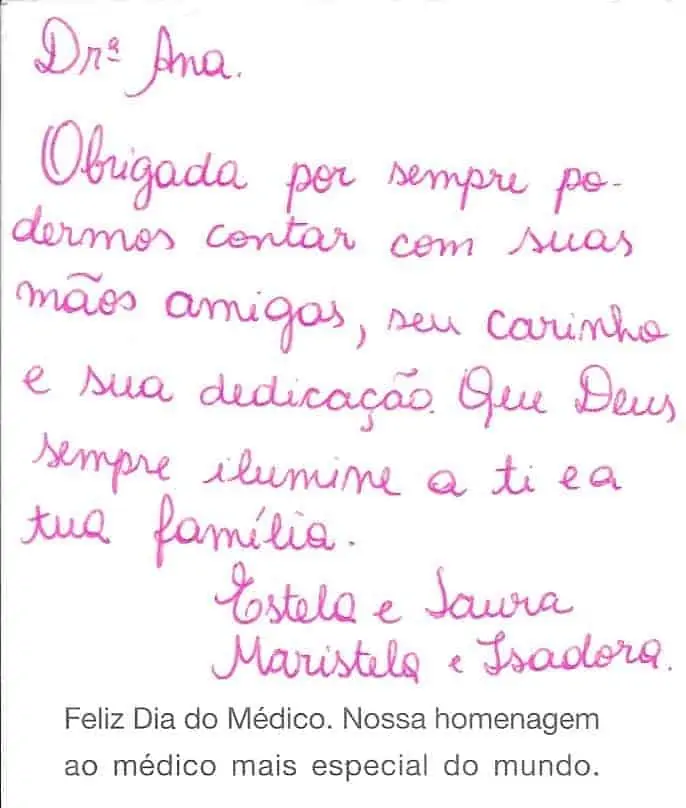 Drª Ana.
Obrigada por sempre po-
dermos contar com suas
mãos amigas, seu carinho
e sua dedicação. Que Deus
sempre ilumine a ti e a
tua família.
Estela e Laura
Maristela e Isadora.
Feliz Dia do Médico. Nossa homenagem
ao médico mais especial do mundo.